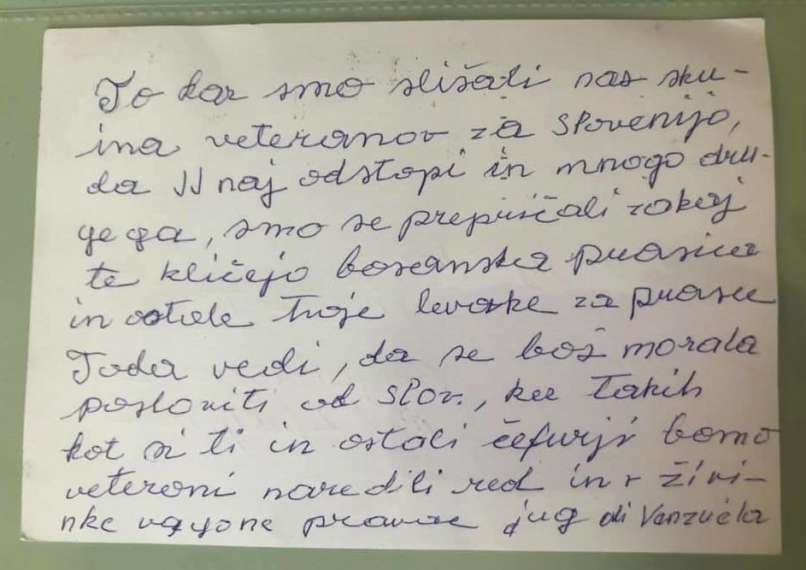 To kar smo slišali nas sku-
ina veteranov za Slovenijo,
da JJ naj odstopi in mnogo dru-
gega, smo se prepričali zakaj
te kličejo bosanska prasica
in ostale tvoje levake za prasce
Toda vedi, da se boš morala
posloviti od Slov., ker takih
kot si ti in ostali čefurji bomo
veterani naredili red in v živi-
nke vagone jug ali Vanzuela